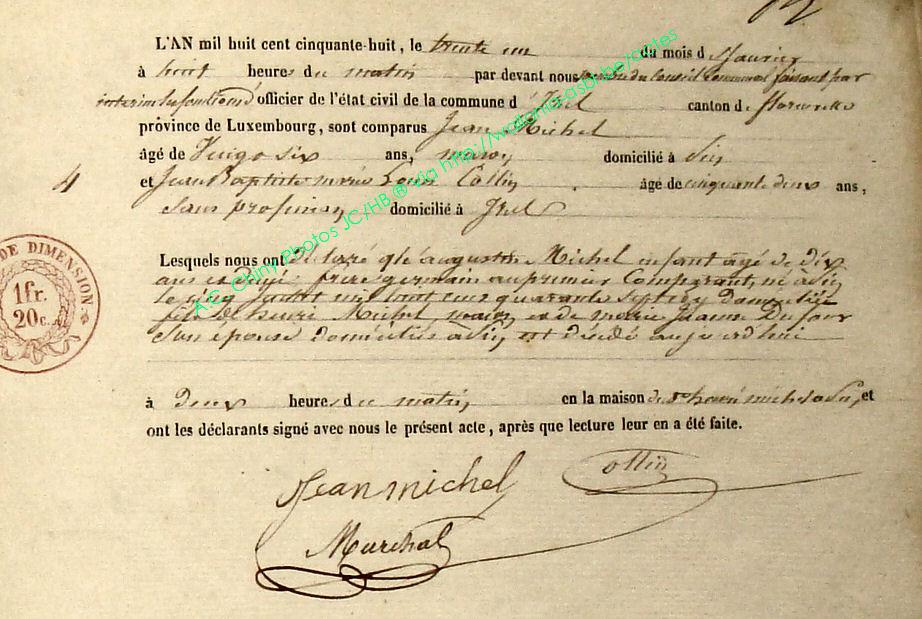 L'AN mil huit cent cinquante-huit, le trente un du mois d Janvier
à huit heures du matin par devant nous membre du Conseil Communal faisant par
interim les fonctions d'officier de l'état civil de la commune d'Izel canton de florenville
province de Luxembourg, sont comparus Jean Michel
âgé de Vingt six ans, maçon domicilié à
4
et Jean Baptiste marie Louis Collin âgé de cinquante deux ans,
Sans profession domicilié à Izel
Lesquels nous ont declaré que augustin Michel enfant agé de dix
ans et demie frere germain au premier Comparant, né à
le cinq juillet mil huit cent quarante sept et y domicilié
fils de henri Michel, maçon et de marie jeanne Dufour
Son épouse domiciliés à est décédé aujourdhui
à deux heures du matin en la maison de henri michel a et
ont les déclarants signé avec nous le présent acte, après que lecture leur en a été faite.
Jean michel Collin
Marchal
DE DIMENSION
1fr.
20c.
A.C. Chiny Photos JC/HB ® via http://wallonica.asbl.be/actes